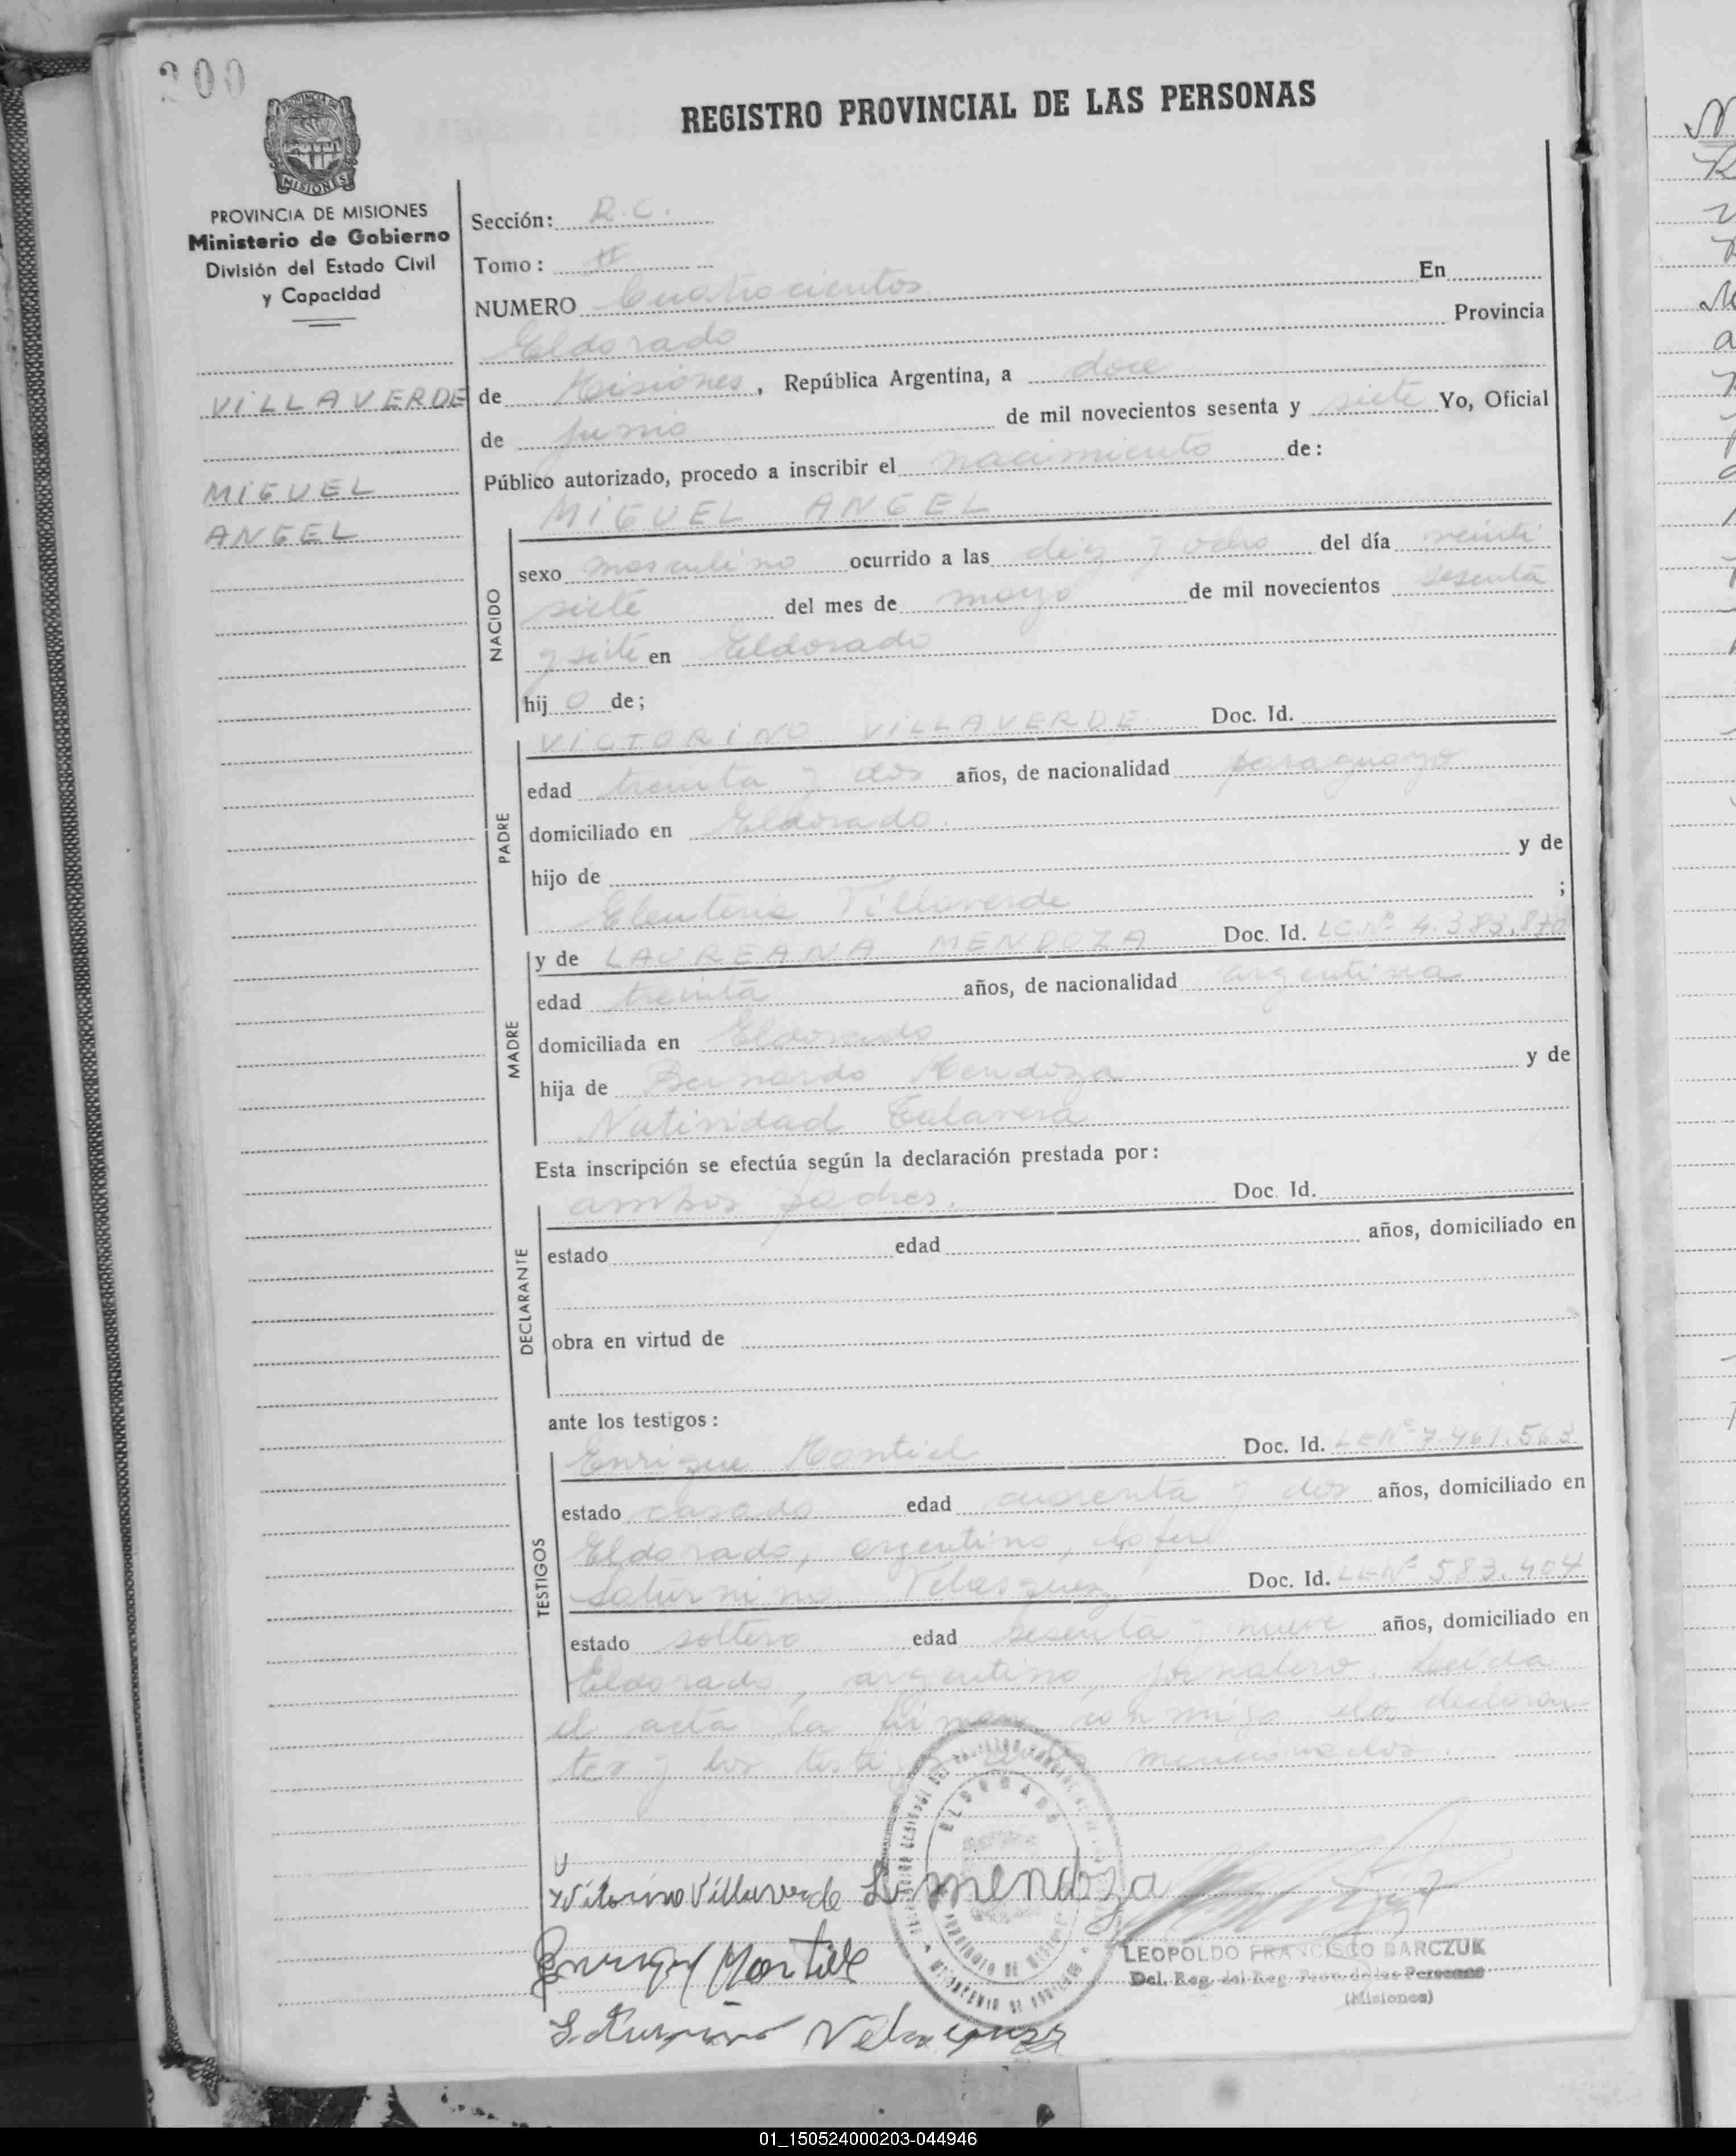 200
REGISTRO PROVINCIAL DE LAS PERSONAS
MISIONES
PROVINCIA DE MISIONES
Ministerio de Gobierno
División del Estado Civil
y Capacidad
VILLAVERDE
MIGUEL
ANGEL
Sección: R.C.
Tomo: II
NUMERO Cuatrocientos En
Eldorado Provincia
de Misiones, República Argentina, a doce
de junio de mil novecientos sesenta y siete Yo, Oficial
Público autorizado, procedo a inscribir el nacimiento de:
MIGUEL ANGEL
NACIDO
sexo masculino ocurrido a las diez y ocho del día veinti
siete del mes de mayo de mil novecientos sesenta
y siete en Eldorado
hijo de;
VICTORINO VILLAVERDE Doc. Id.
PADRE
edad treinta y dos años, de nacionalidad paraguayo
domiciliado en Eldorado.
hijo de y de
Eleuteria Villaverde ;
y de LAUREANA MENDOZA Doc. Id. LC.Nº 4.383.870
MADRE
edad treinta años, de nacionalidad argentina
domiciliada en Eldorado
hija de Bernardo Mendoza y de
Natividad Talavera
Esta inscripción se efectúa según la declaración prestada por:
ambos padres. Doc. Id.
DECLARANTE
estado edad años, domiciliado en
obra en virtud de
ante los testigos:
Enrique Montiel Doc. Id. LENº 7.461.563
TESTIGOS
estado casado edad cuarenta y dos años, domiciliado en
Eldorado, argentino, chofer
Saturnino Velasquez Doc. Id. LENº 583.404
estado soltero edad sesenta y nueve años, domiciliado en
Eldorado, argentino, jornalero. Leída
el acta la firman conmigo los declaran-
tes y los testigos mencionados.
ELDORADO
Vitorino Villaverde L mendoza
Enrique Montiel
LEOPOLDO FRANCISCO BARCZUK
Del. Reg. del Reg. Prov. de las Personas
(Misiones)
Saturnino Velasquez
01_150524000203-044946